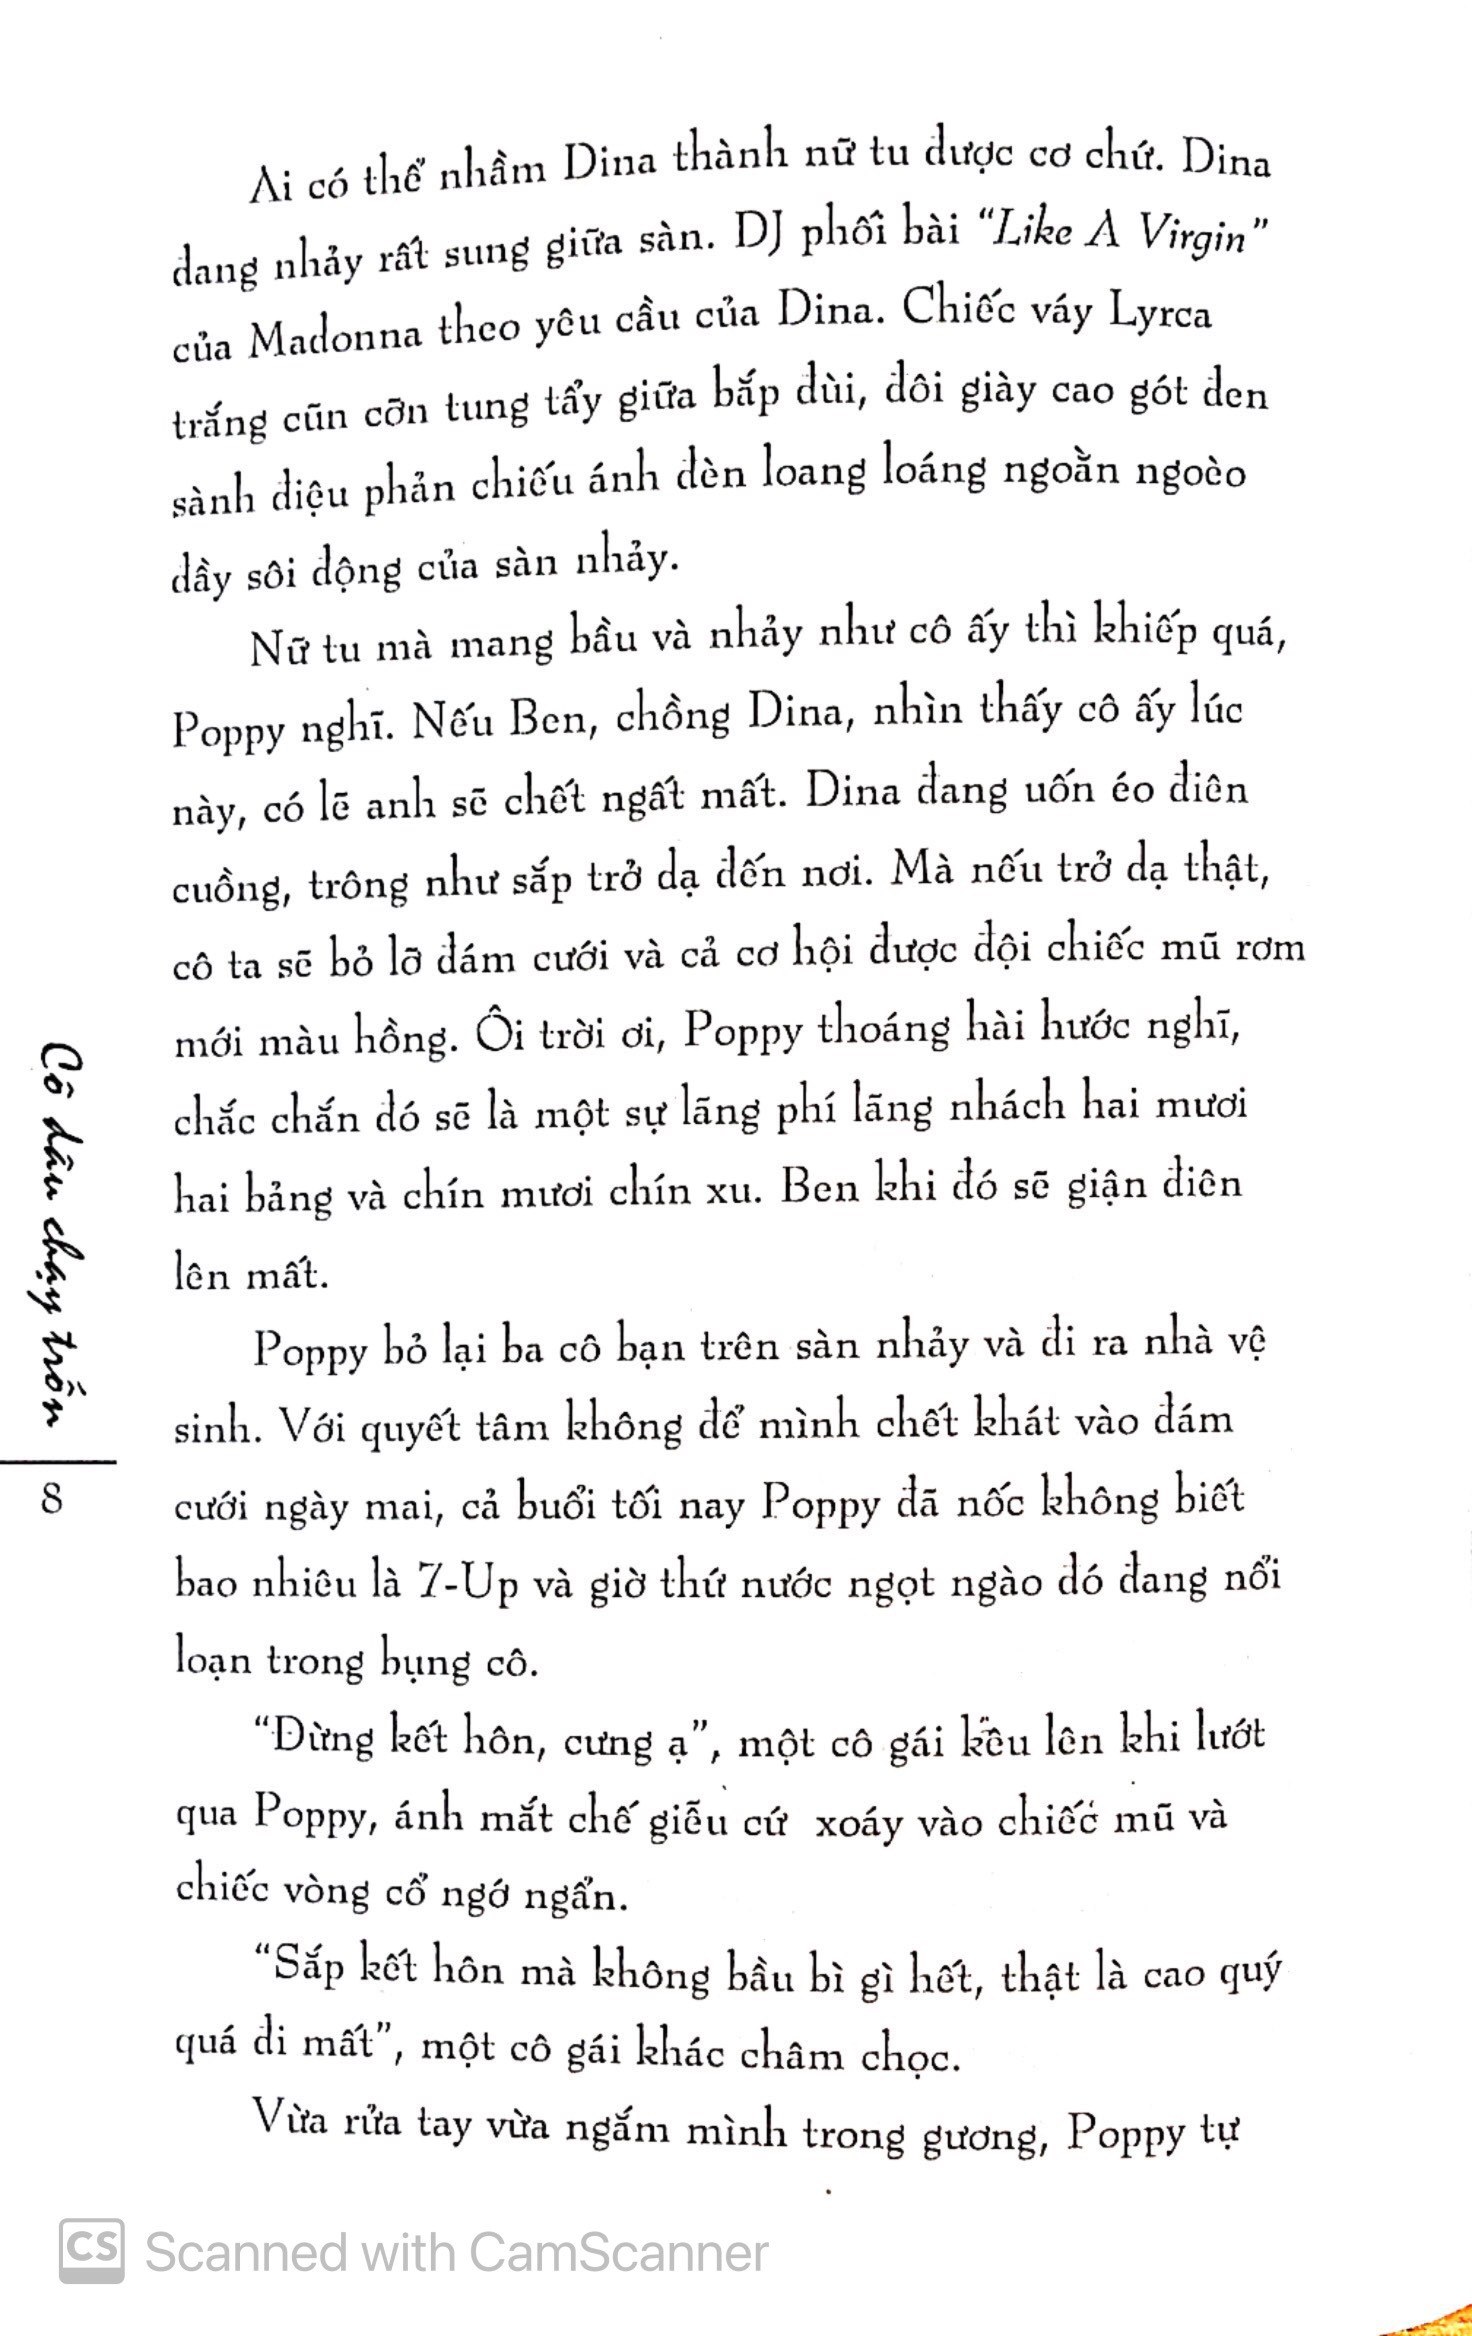 Ai có thể nhầm Dina thành nữ tu được cơ chứ. Dina
đang nhảy rất sung giữa sàn. DJ phối bài “Like A Virgin”
của Madonna theo yêu cầu của Dina. Chiếc váy Lyrca
trắng cũn cỡn tung tẩy giữa bắp đùi, đôi giày cao gót đen
sành điệu phản chiếu ánh đèn loang loáng ngoằn ngoèo
đầy sôi động của sàn nhảy.
Nữ tu mà mang bầu và nhảy như cô ấy thì khiếp quá,
Poppy nghĩ. Nếu Ben, chồng Dina, nhìn thấy cô ấy lúc
này, có lẽ anh sẽ chết ngất mất. Dina đang uốn éo điên
cuồng, trông như sắp trở dạ đến nơi. Mà nếu trở dạ thật,
cô ta sẽ bỏ lỡ đám cưới và cả cơ hội được đội chiếc mũ rơm
mới màu hồng. Ôi trời ơi, Poppy thoáng hài hước nghĩ,
chắc chắn đó sẽ là một sự lãng phí lãng nhách hai mươi
hai bảng và chín mươi chín xu. Ben khi đó sẽ giận điên
lên mất.
Poppy bỏ lại ba cô bạn trên sàn nhảy và đi ra nhà vệ
sinh. Với quyết tâm không để mình chết khát vào đám
cưới ngày mai, cả buổi tối nay Poppy đã nốc không biết
bao nhiêu là 7-Up và giờ thứ nước ngọt ngào đó đang nổi
loạn trong bụng cô.
“Đừng kết hôn, cưng ạ”, một cô gái kêu lên khi lướt
qua Poppy, ánh mắt chế giễu cứ xoáy vào chiếc mũ và
chiếc vòng cổ ngớ ngẩn.
“Sắp kết hôn mà không bầu bì gì hết, thật là cao quý
quá đi mất”, một cô gái khác châm chọc.
Vừa rửa tay vừa ngắm mình trong gương, Poppy tự
Cô dâu chạy trốn
8
CS Scanned with CamScanner